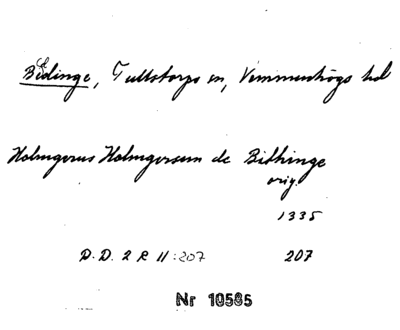 Bedinge, Tullstorps sn, Vemmenhögs hd
Holmgerus Holmgerssun de Bithinge
orig.
1335
D. D. 2 R II:207 207
Nr 10585